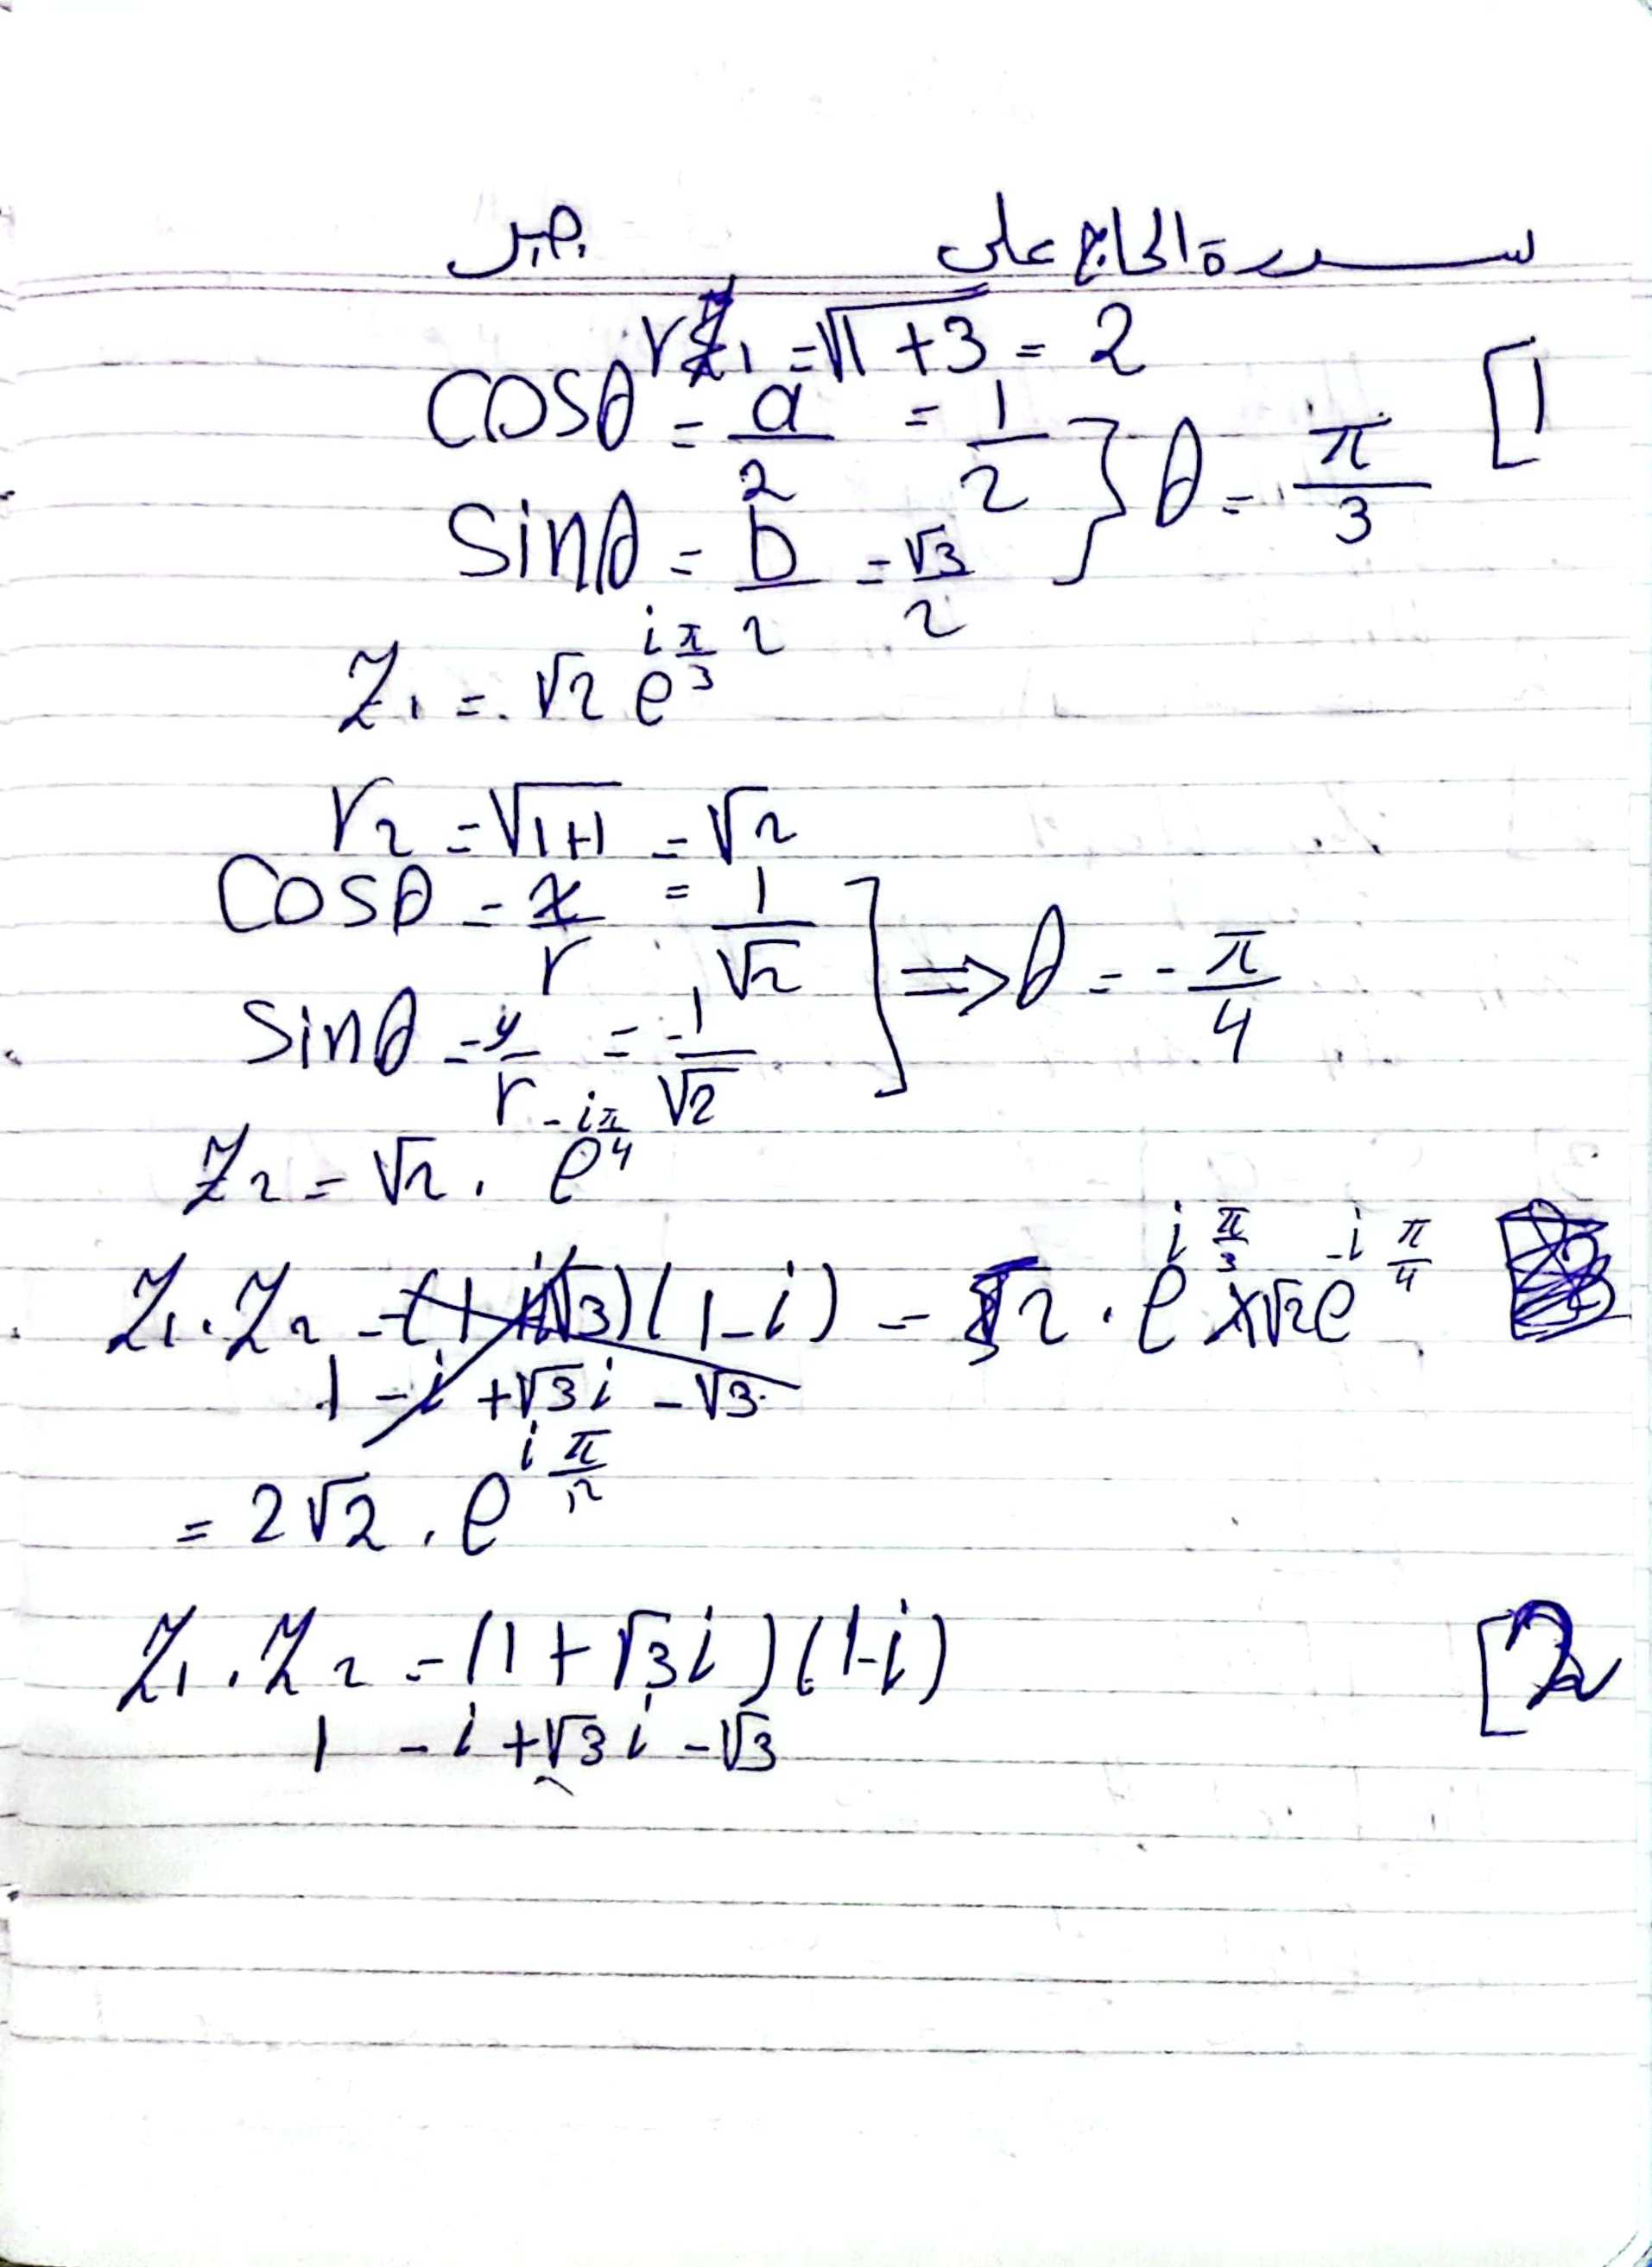 سدرة الحاج علي جبر
[1 r₁ = √1+3 = 2
cosθ = a/2 = 1/2 } θ = π/3
sinθ = b/2 = √3/2
Z₁ = √2 e^{iπ/3}
r₂ = √1+1 = √2
cosθ = x/r = 1/√2 ] ⇒ θ = -π/4
sinθ = y/r = -1/√2
Z₂ = √2 . e^{-iπ/4}
Z₁.Z₂ = (1+i√3)(1-i) = 2 . e^{iπ/3} × √2 e^{-iπ/4}
1 - i + √3i - √3
= 2√2 . e^{iπ/12}
[2 Z₁.Z₂ = (1+√3i)(1-i)
1 - i + √3i - √3